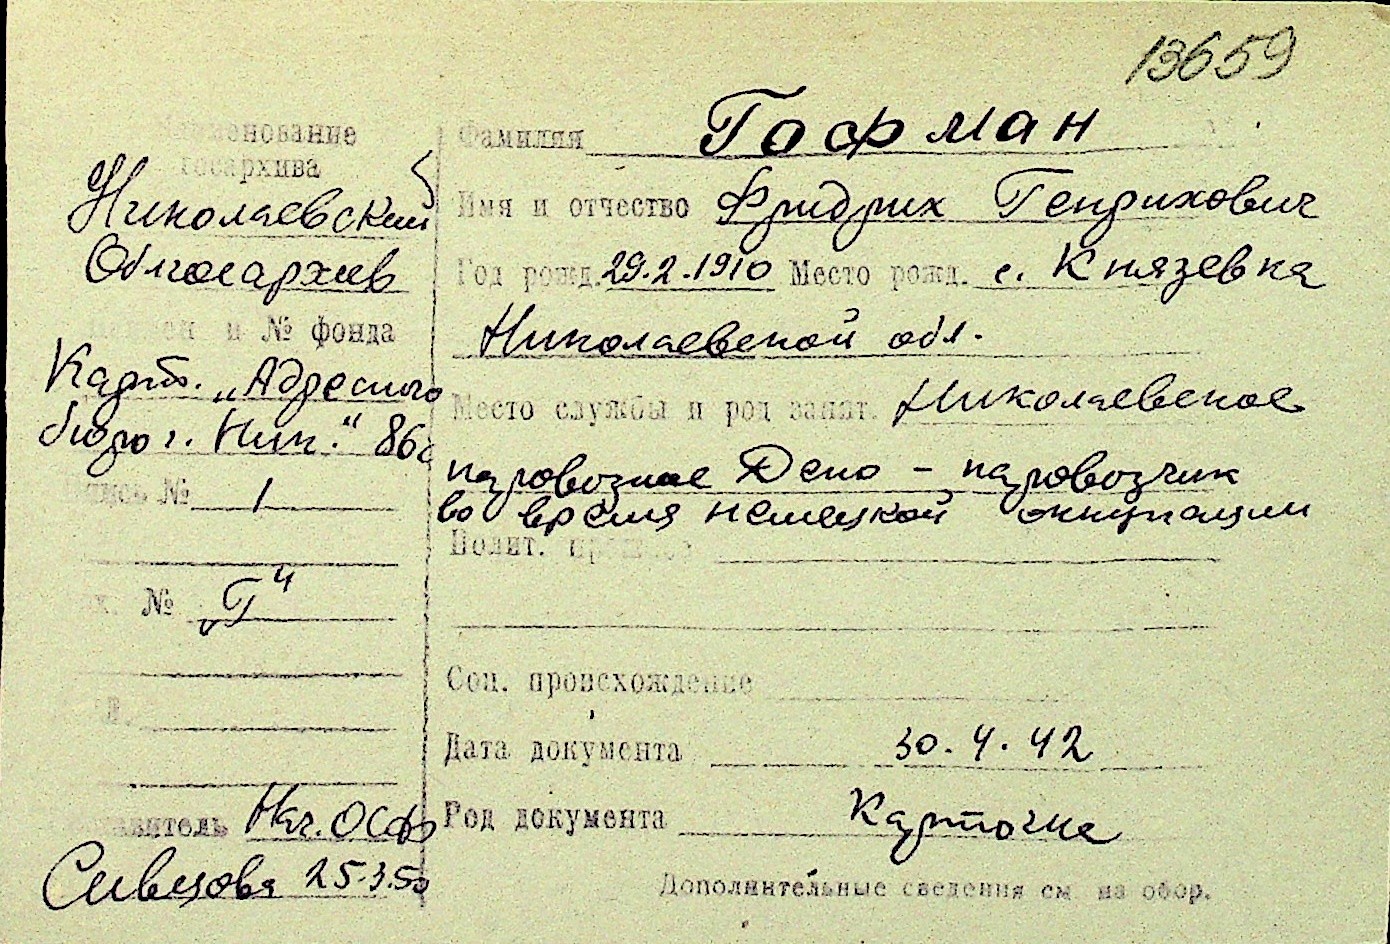 13659
Наименование
госархива
Николаевский
Облгосархив
и № фонда
Карт. „Адресного
бюро г. Ник." 86с
Опись № 1
№ „Г"
Составитель Нач. ОСФ
Сивцова 25.3.50
Фамилия Гофман
Имя и отчество Фридрих Генрихович
Год рожд. 29.2.1910 Место рожд. с. Князевка
Николаевской обл.
Место службы и род занят. Николаевское
паровозное Депо – паровозчик
во время немецкой оккупации
Полит. прошлое
Соц. происхождение
Дата документа 30.4.42
Род документа Карточка
Дополнительные сведения см на обор.